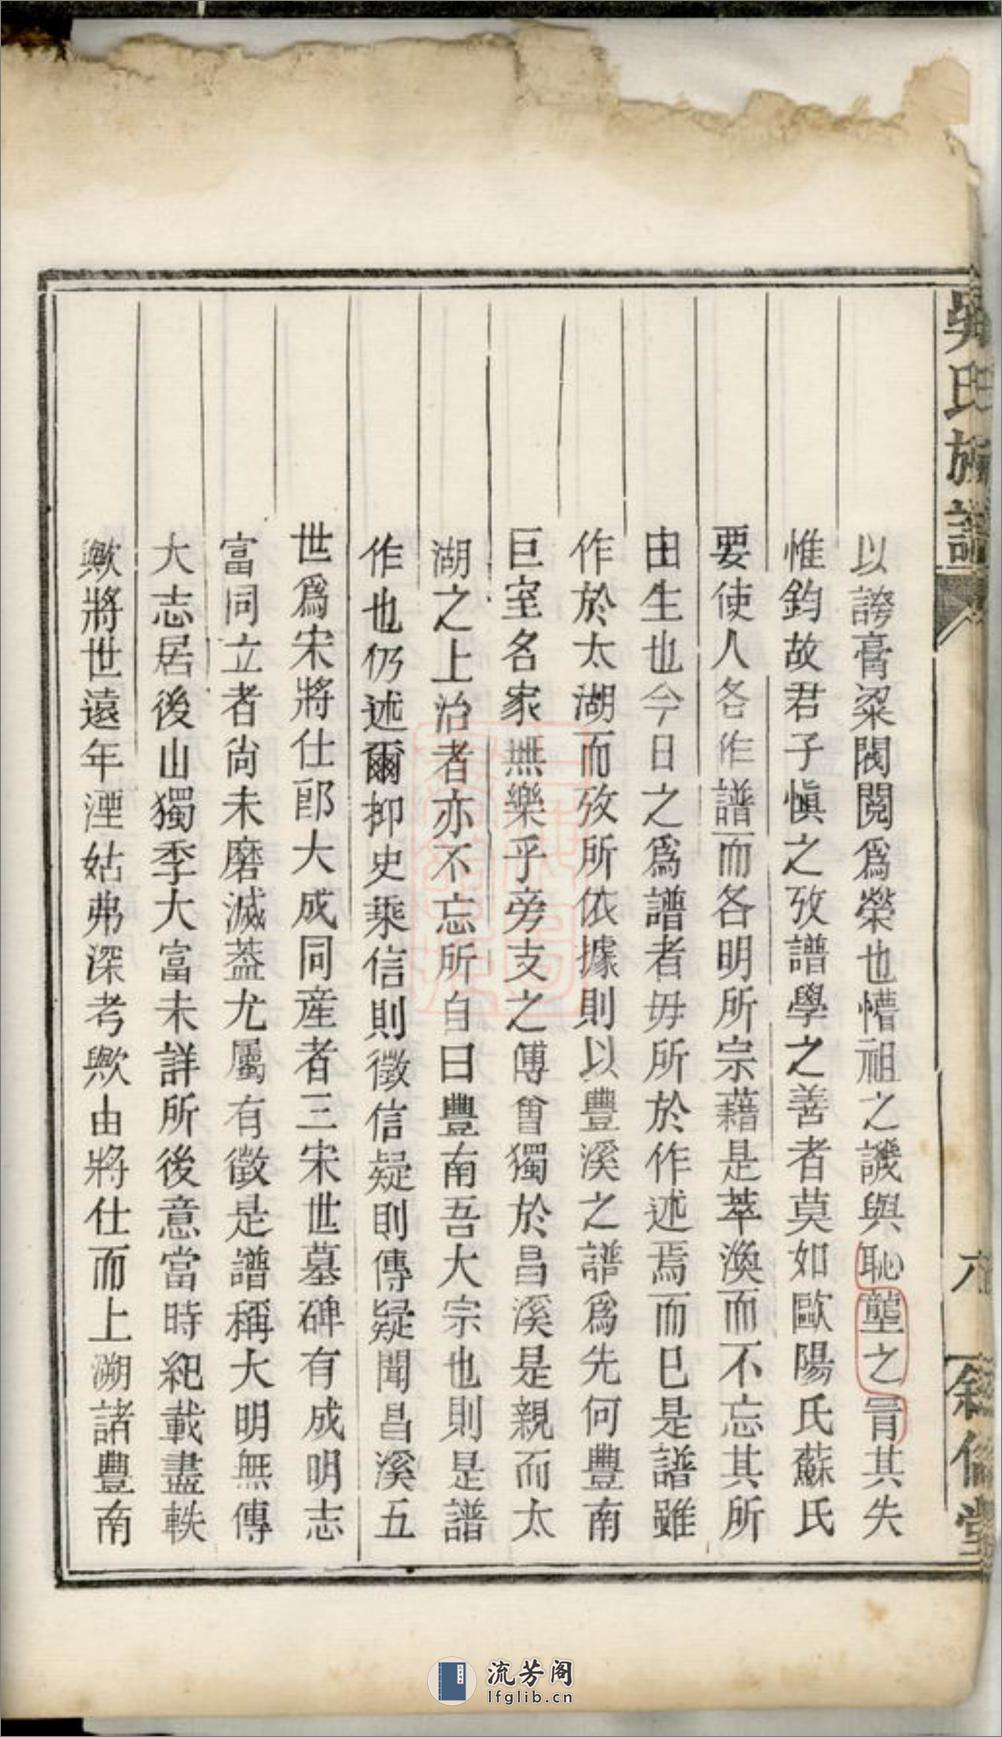 吳氏族譜
六
敘倫堂
以誇膏粱閥閱爲榮也懵祖之譏與恥壟之胷其失
惟鈞故君子愼之攷譜學之善者莫如歐陽氏蘇氏
要使人各作譜而各明所宗藉是萃渙而不忘其所
由生也今日之爲譜者毋所於作述焉而已是譜雖
作於太湖而攷所依據則以豐溪之譜爲先何豐南
巨室名家無樂乎旁支之傅曾獨於昌溪是親而太
湖之上治者亦不忘所自曰豐南吾大宗也則是譜
作也仍述爾抑史乘信則徵信疑則傳疑聞昌溪五
世爲宋將仕郎大成同産者三宋世墓碑有成明志
富同立者尚未磨滅葢尤屬有徵是譜稱大明無傳
大志居後山獨季大富未詳所後意當時紀載盡軼
歟將世遠年湮姑弗深考歟由將仕而上溯諸豐南
流芳阁
lfglib.cn